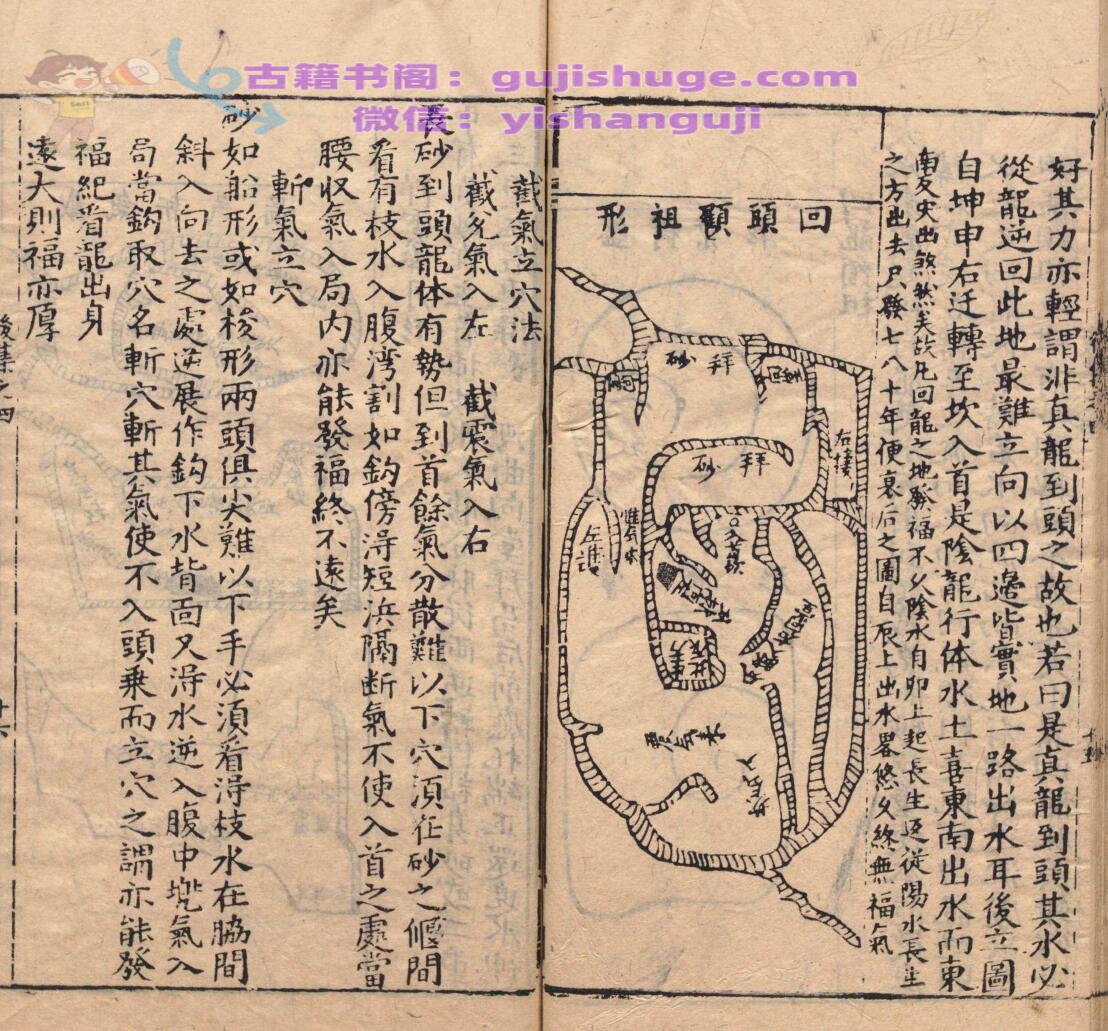 古籍书阁：gujishuge.com
微信：yishanguji
好其力亦輕謂非真龍到頭之故也若曰是真龍到頭其水必
從龍逆回此地最難立向以四邉皆實地一路出水耳後立圖
自坤申右迁轉至坎入首是陰龍行体水土喜東南出水而東
南反史出煞然美故凡回龍之地發福不久陰水自卯上起長生逆從陽水長生
之方出去只發七八十年便衰后之圖自辰上出水畧悠久終無福氣
回頭顧祖形
拜砂
拜砂
右接
左護
截氣立穴法
截兌氣入左　截震氣入右
長砂到頭龍体有勢但到首餘氣分散難以下穴湏在砂之偃間
看有枝水入腹湾割如鈎傍淂短浜隔断氣不使入首之處當
腰収氣入局内亦能發福終不遠矣
斬氣立穴
砂如船形或如梭形兩頭俱尖難以下手必湏看淂枝水在脇間
斜入向去之處逆展作鈎下水背面又淂水逆入腹中兠氣入
局當鈎取穴名斬穴斬其氣使不入頭乗而立穴之謂亦能發
福紀看龍出身
遠大則福亦厚
後集之四